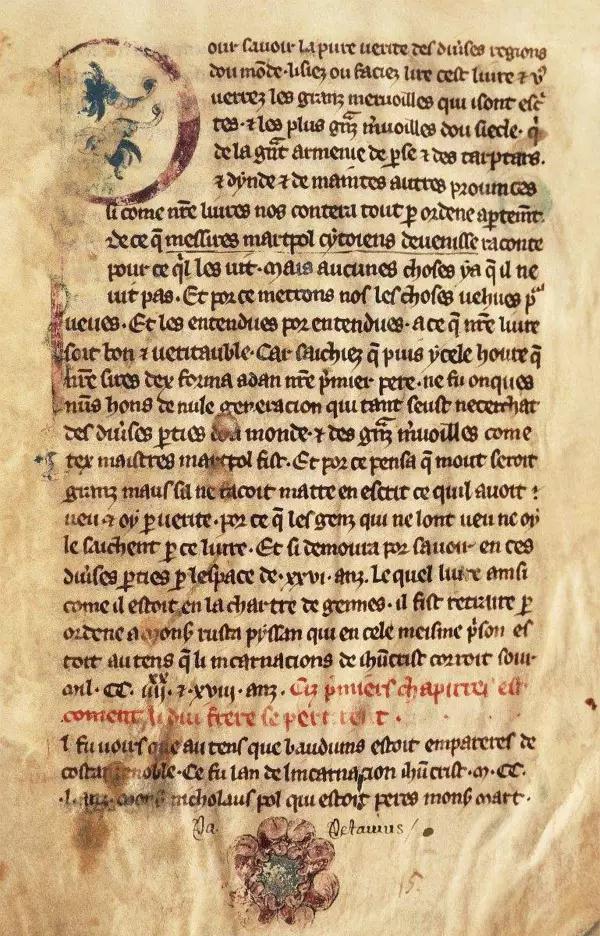 our savoir la pure verite des diu̾ses regions
dou mõde · lisiez ou faciez lire cest liure ⁊ vͦ
verrez les granz mervoilles qui i sont esc̾
tes · ⁊ les plus gñz m̾uoilles dou siecle · q̾
de la gñt armenie de ꝑse ⁊ des tarptars .
⁊ dynde ⁊ de maintes autres prouinces
si come nr̃e liures nos contera tout ꝑ ordene
de ce q̃ messires marcpol cytoiens deuenisse raconte
pour ce ql̾ les uit · mais aucunes choses ya q̃ il ne
uit pas · Et por ce metrons nos les choses vehues ꝑ
ueues · Et les entendues por entendues · a ce q̃ nr̃e liure
soit bon ⁊ ueritauble · Car saichiez q̃ puis ycele houre q̃
nr̃e sires dex forma adan nr̃e p̾mier pere · ne fu onques
nũs hons de nule generacion qui tant seust ne cerchat
des diu̾ses ꝑties dou monde · ⁊ des gñz m̾uoilles come
cex maistres marcpol fist · Et por ce pensa q̃ mout seroit
granz maus sa ne facoit mattre en escrit ce quil auoit
ueu ⁊ oy ꝑ uerite · por ce q̃ les genz qui ne lont ueu ne oy
le saichent ꝑ ce liure · Et si demoura por sauoir en ces
diu̾ses ꝑties ꝑ lespace de · xxvi · anz . Le quel liure ainsi
come il estoit en la chartre de gennes · il fist retraire ꝑ
ordene a mons rusta pyssan qui en cele meisme p̾son es
toit au tens q̃ li incarnacions de ihũcrist corroit sour
mil · CC · iiii · ⁊ xviii · anz . Ciz p̾miers chapitres est
coment li dui frere se partirent .
l fu uoirs que au tens que bauduins estoit empereres de
costantinoble · Ce fu lan de lincarnacion ihũcrist · m · CC ·
· l · anz · mons nicholaus pol qui estoit peres mons marc ·
Petauius
15 .